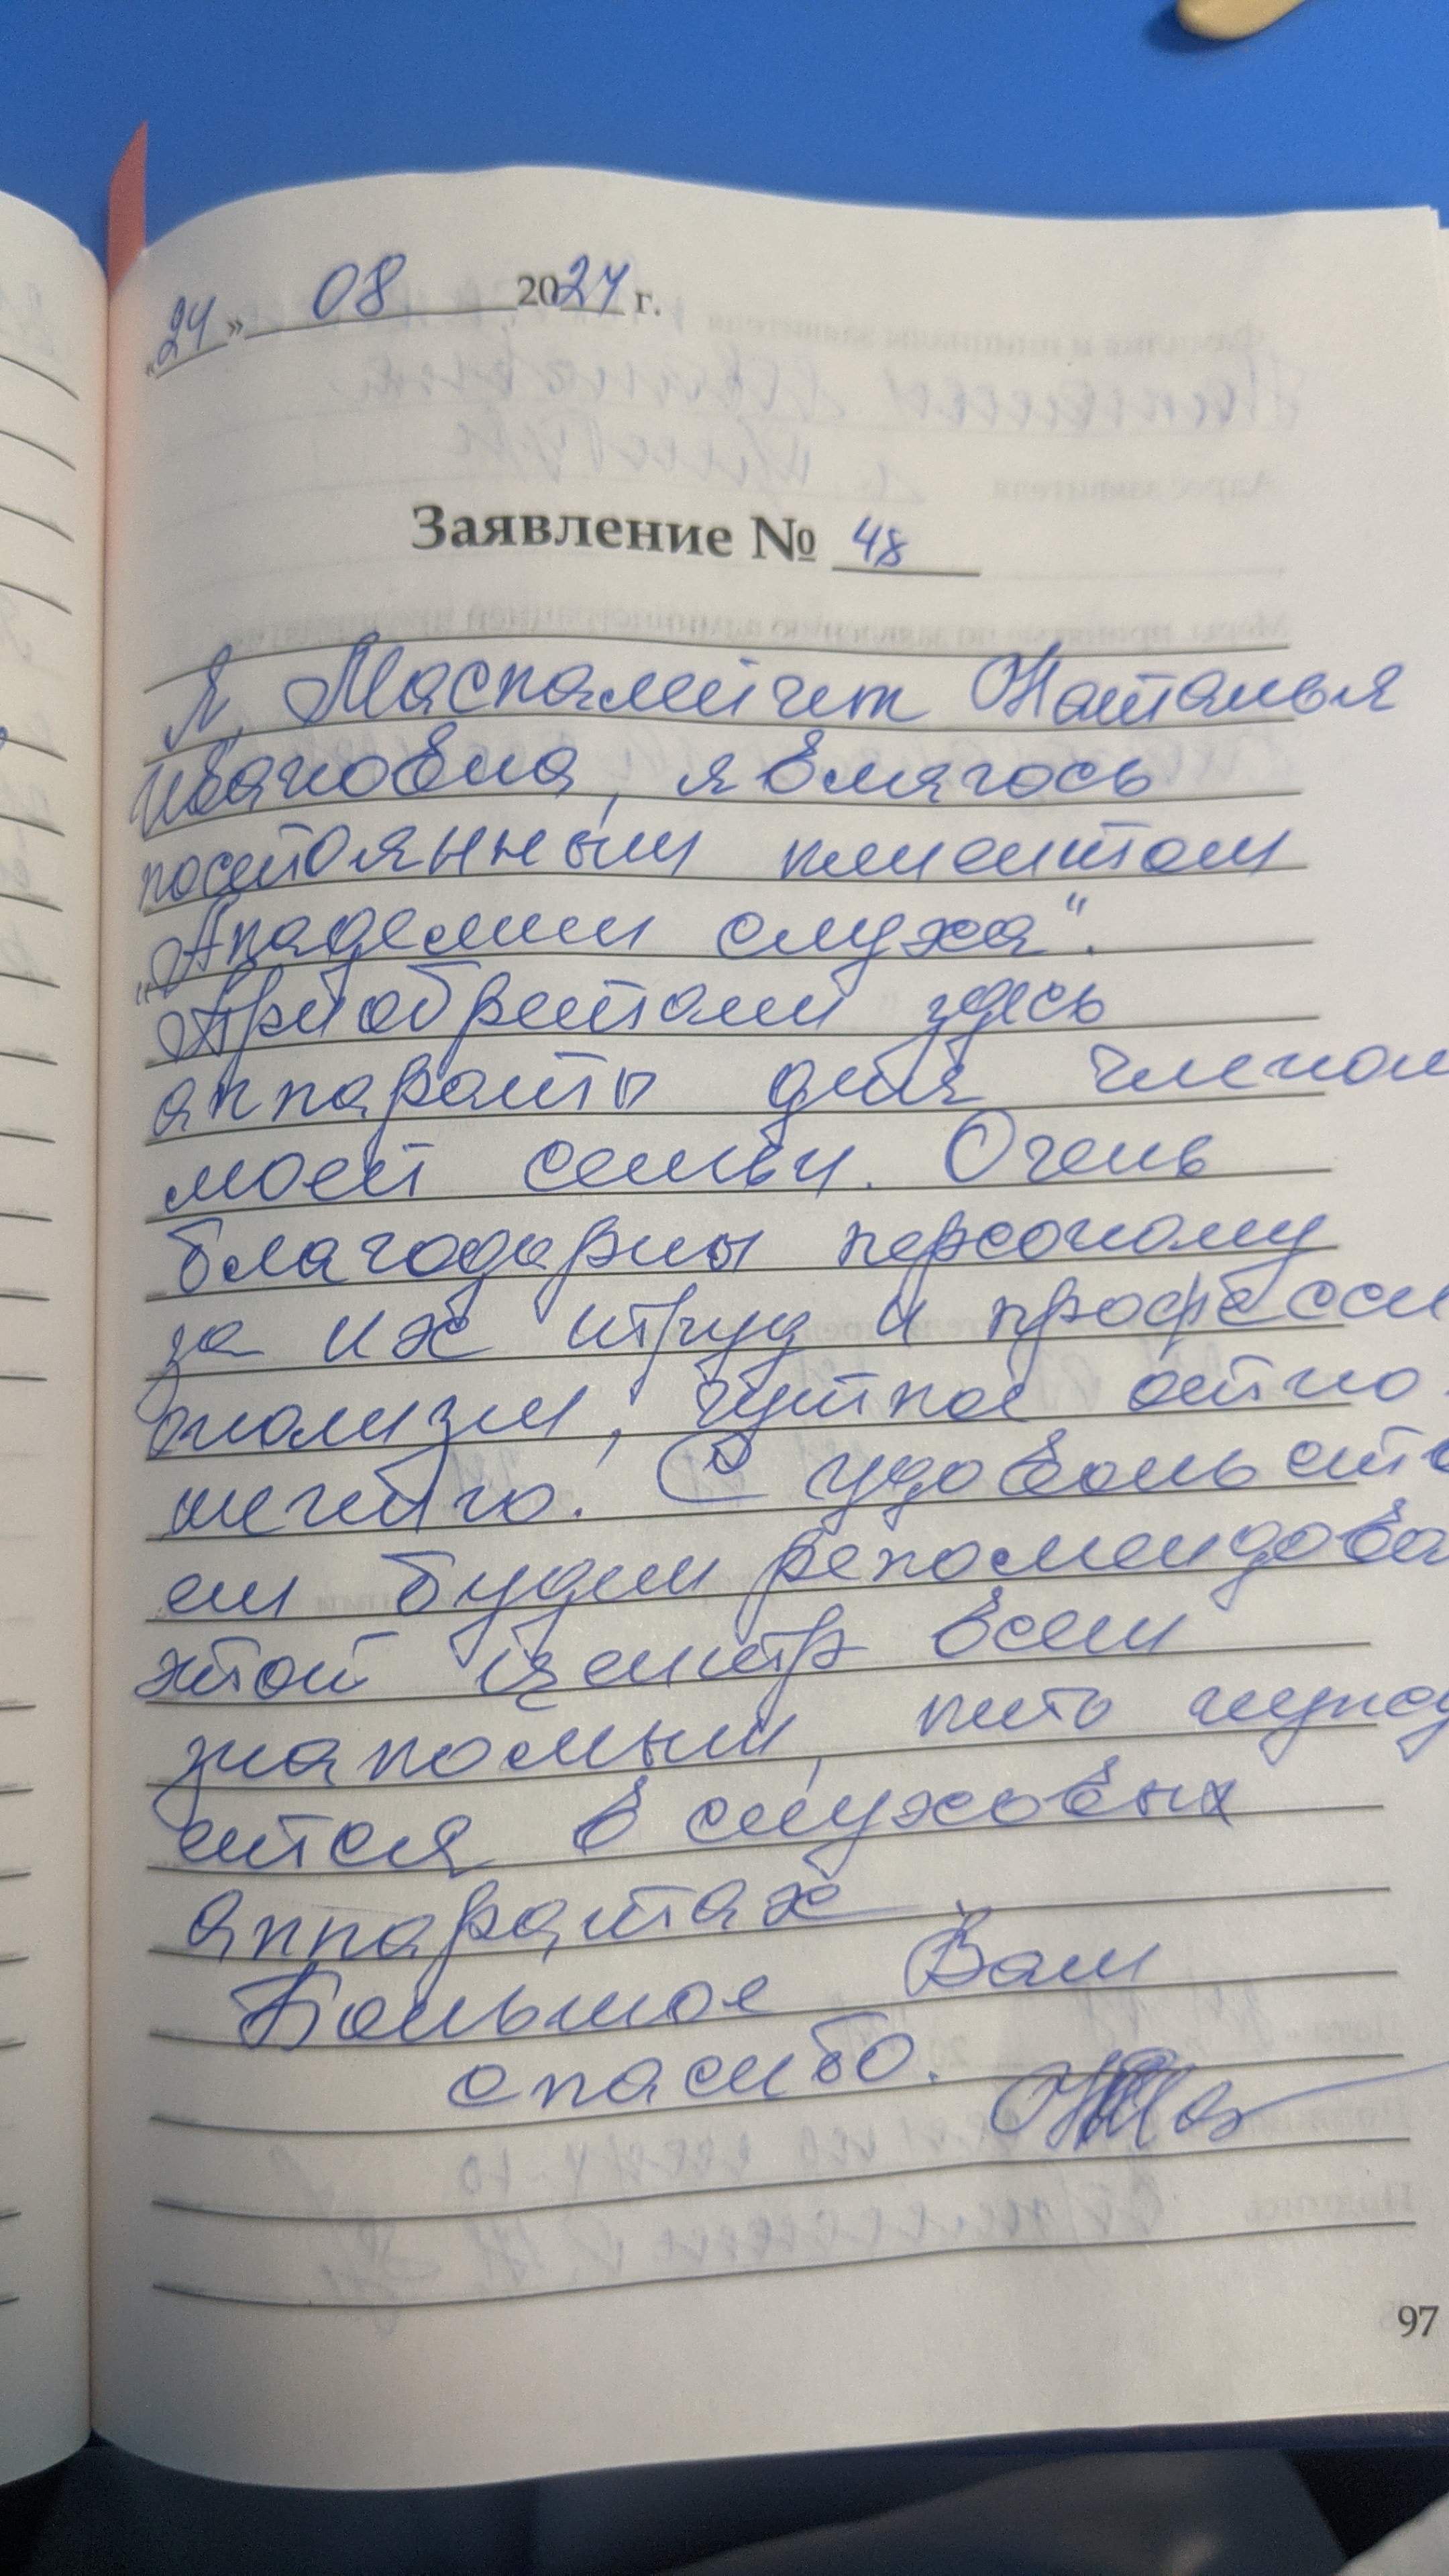 «24» 08 2024 г.
Заявление № 48
Я, Наталья
Ивановна, являюсь
постоянным клиентом
„Академии слуха“.
Приобретали здесь
аппараты для членов
моей семьи. Очень
благодарны персоналу
за их труд и професси
онализм, чуткое отно-
шение. С удовольств
ем будем рекомендова
этот центр всем
знакомым, кто нужд
ается в слуховых
аппаратах
Большое Вам
спасибо.
97